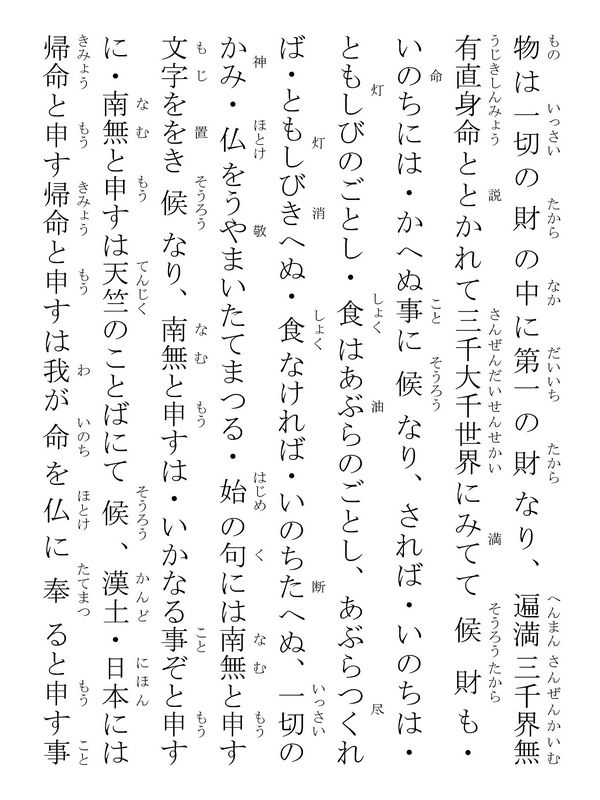 物は一切の財の中に第一の財なり、遍満三千界無
有直身命ととかれて三千大千世界にみてて候財も・
いのちには・かへぬ事に候なり、されば・いのちは・
ともしびのごとし・食はあぶらのごとし、あぶらつくれ
ば・ともしびきへぬ・食なければ・いのちたへぬ、一切の
かみ・仏をうやまいたてまつる・始の句には南無と申す
文字ををき候なり、南無と申すは・いかなる事ぞと申す
に・南無と申すは天竺のことばにて候、漢土・日本には
帰命と申す帰命と申すは我が命を仏に奉ると申す事